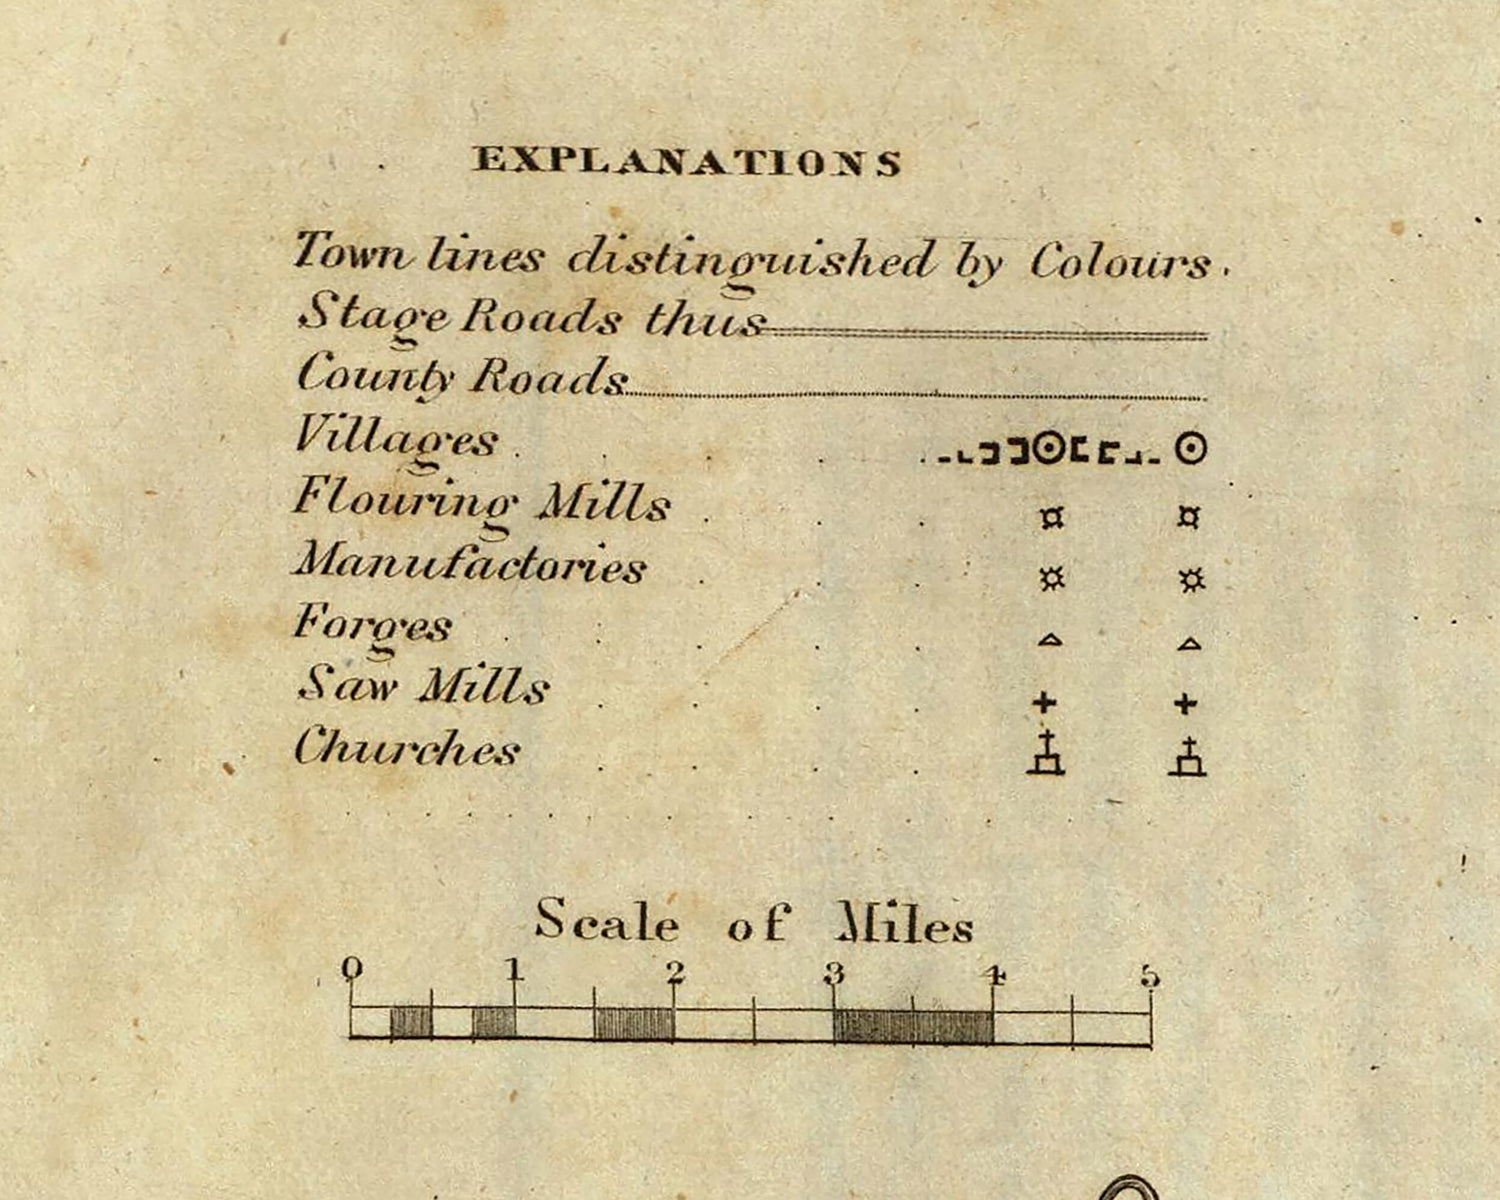 EXPLANATIONS
Town lines distinguished by Colours.
Stage Roads thus
County Roads
Villages
Flouring Mills
Manufactories
Forges
Saw Mills
Churches
Scale of Miles
0 1 2 3 4 5